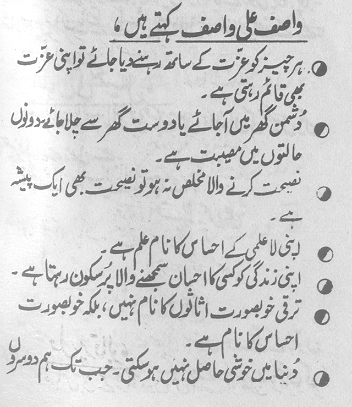 واصف علی واصف کہتے ہیں،
ہر چیز کو عزت کے ساتھ رہنے دیا جائے تو اپنی عزت
بھی قائم رہتی ہے۔
دُشمن گھر میں آجائے یا دوست گھر سے چلا جائے۔ دونوں
حالتوں میں مصیبت ہے۔
نصیحت کرنے والا مخلص نہ ہو تو نصیحت بھی ایک پیشہ
ہے۔
اپنی لا علمی کے احساس کا نام علم ہے۔
اپنی زندگی کو کسی کا احسان سمجھنے والا پُرسکون رہتا ہے۔
ترقی خوبصورت اثاثوں کا نام نہیں، بلکہ خوبصورت
احساس کا نام ہے۔
دُنیا میں خوشی حاصل نہیں ہوسکتی۔ جب تک ہم دوسروں